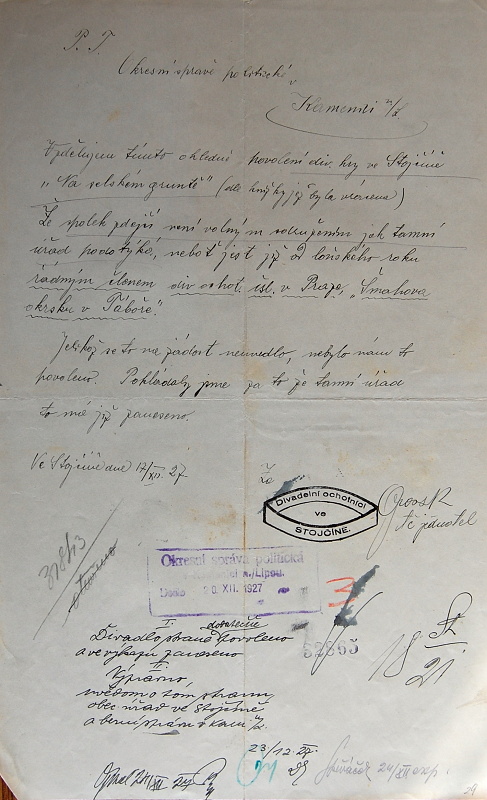 P. T.
Okresní správě politické
v
Kamenici n/L.
Vzdělujem tímto ohledně povolení div. hry ve Stojčíně
„Na selském gruntě" (dle knížky již byla vrácena)
Že spolek zdejší není volným sdružením jak tamní
úřad podotýká, neboť jest již od loňského roku
řádným členem div. ochot. čsl. v Praze, „Šmahova
okrsku v Táboře".
Jelikož se to na žádost neuvedlo, nebylo nám to
povoleno. Pokládaly jsme za to že tamní úřad
to má již zaneseno.
Ve Stojčíně dne 17/XII. 27.
Za
Divadelní ochotníci
ve
STOJČÍNĚ.
31843
Okresní správa politická
v Kamenici n./Lipou.
Došlo 20. XII. 1927
3
I.
dodatečně
Divadlo straně povoleno
a ve výkazu zaneseno
II.
Výměrno,
uvědom o tom stranu,
obec. úřad ve Stojčíně
a berní správu v Kam. n/L.
18
21
23/12 27.
24/XII 27
24/XII exp.
29